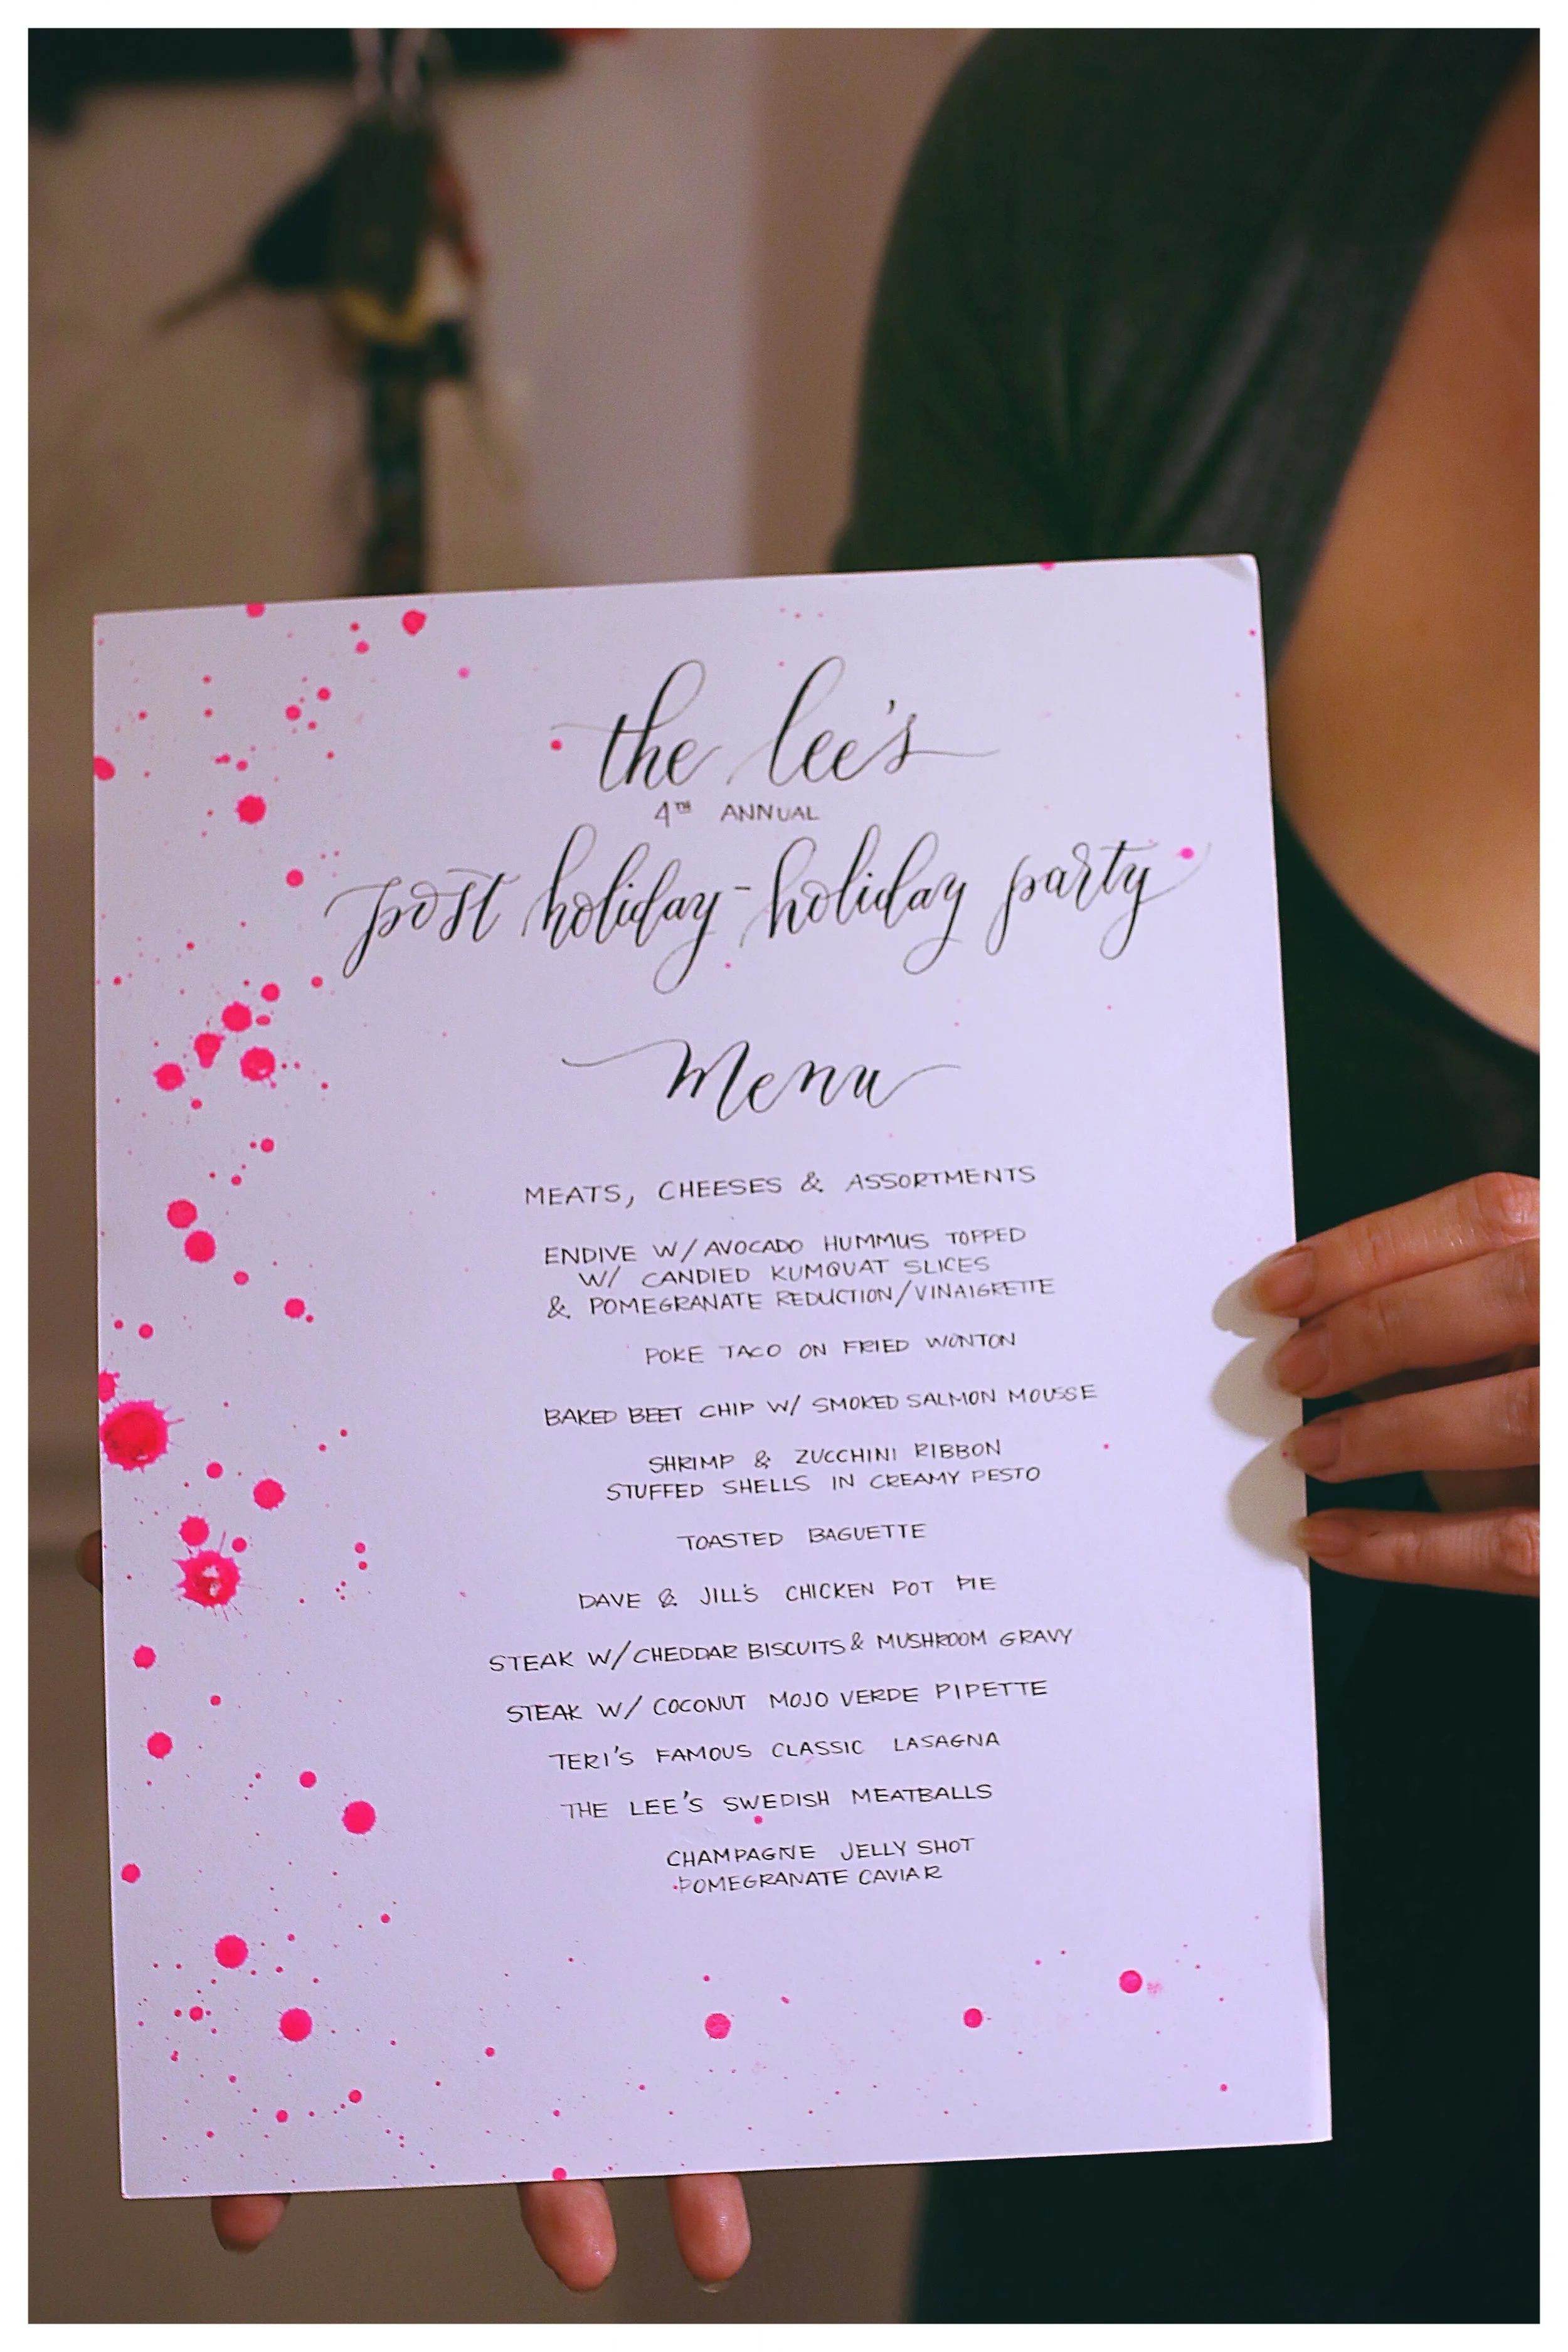 the lee's
4TH ANNUAL
post holiday-holiday party
menu
MEATS, CHEESES & ASSORTMENTS
ENDIVE W/ AVOCADO HUMMUS TOPPED
W/ CANDIED KUMQUAT SLICES
& POMEGRANATE REDUCTION/VINAIGRETTE
POKE TACO ON FRIED WONTON
BAKED BEET CHIP W/ SMOKED SALMON MOUSSE
SHRIMP & ZUCCHINI RIBBON
STUFFED SHELLS IN CREAMY PESTO
TOASTED BAGUETTE
DAVE & JILL'S CHICKEN POT PIE
STEAK W/CHEDDAR BISCUITS & MUSHROOM GRAVY
STEAK W/ COCONUT MOJO VERDE PIPETTE
TERI'S FAMOUS CLASSIC LASAGNA
THE LEE'S SWEDISH MEATBALLS
CHAMPAGNE JELLY SHOT
POMEGRANATE CAVIAR